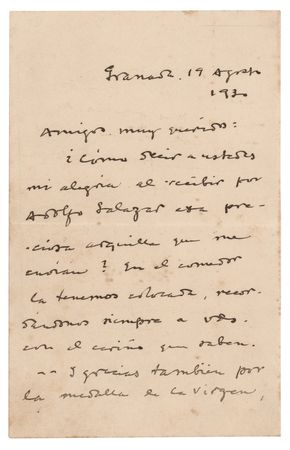 Granada. 19 Agosto
1930
Amigos muy queridos:
¿Cómo decir a ustedes
mi alegría al recibir por
Adolfo Salazar esa pre-
ciosa arquilla que me
envían? En el comedor
la tenemos colocada, recor-
dándonos siempre a Vds.
con el cariño que saben.
-- Y gracias también por
la medalla de la Virgen,